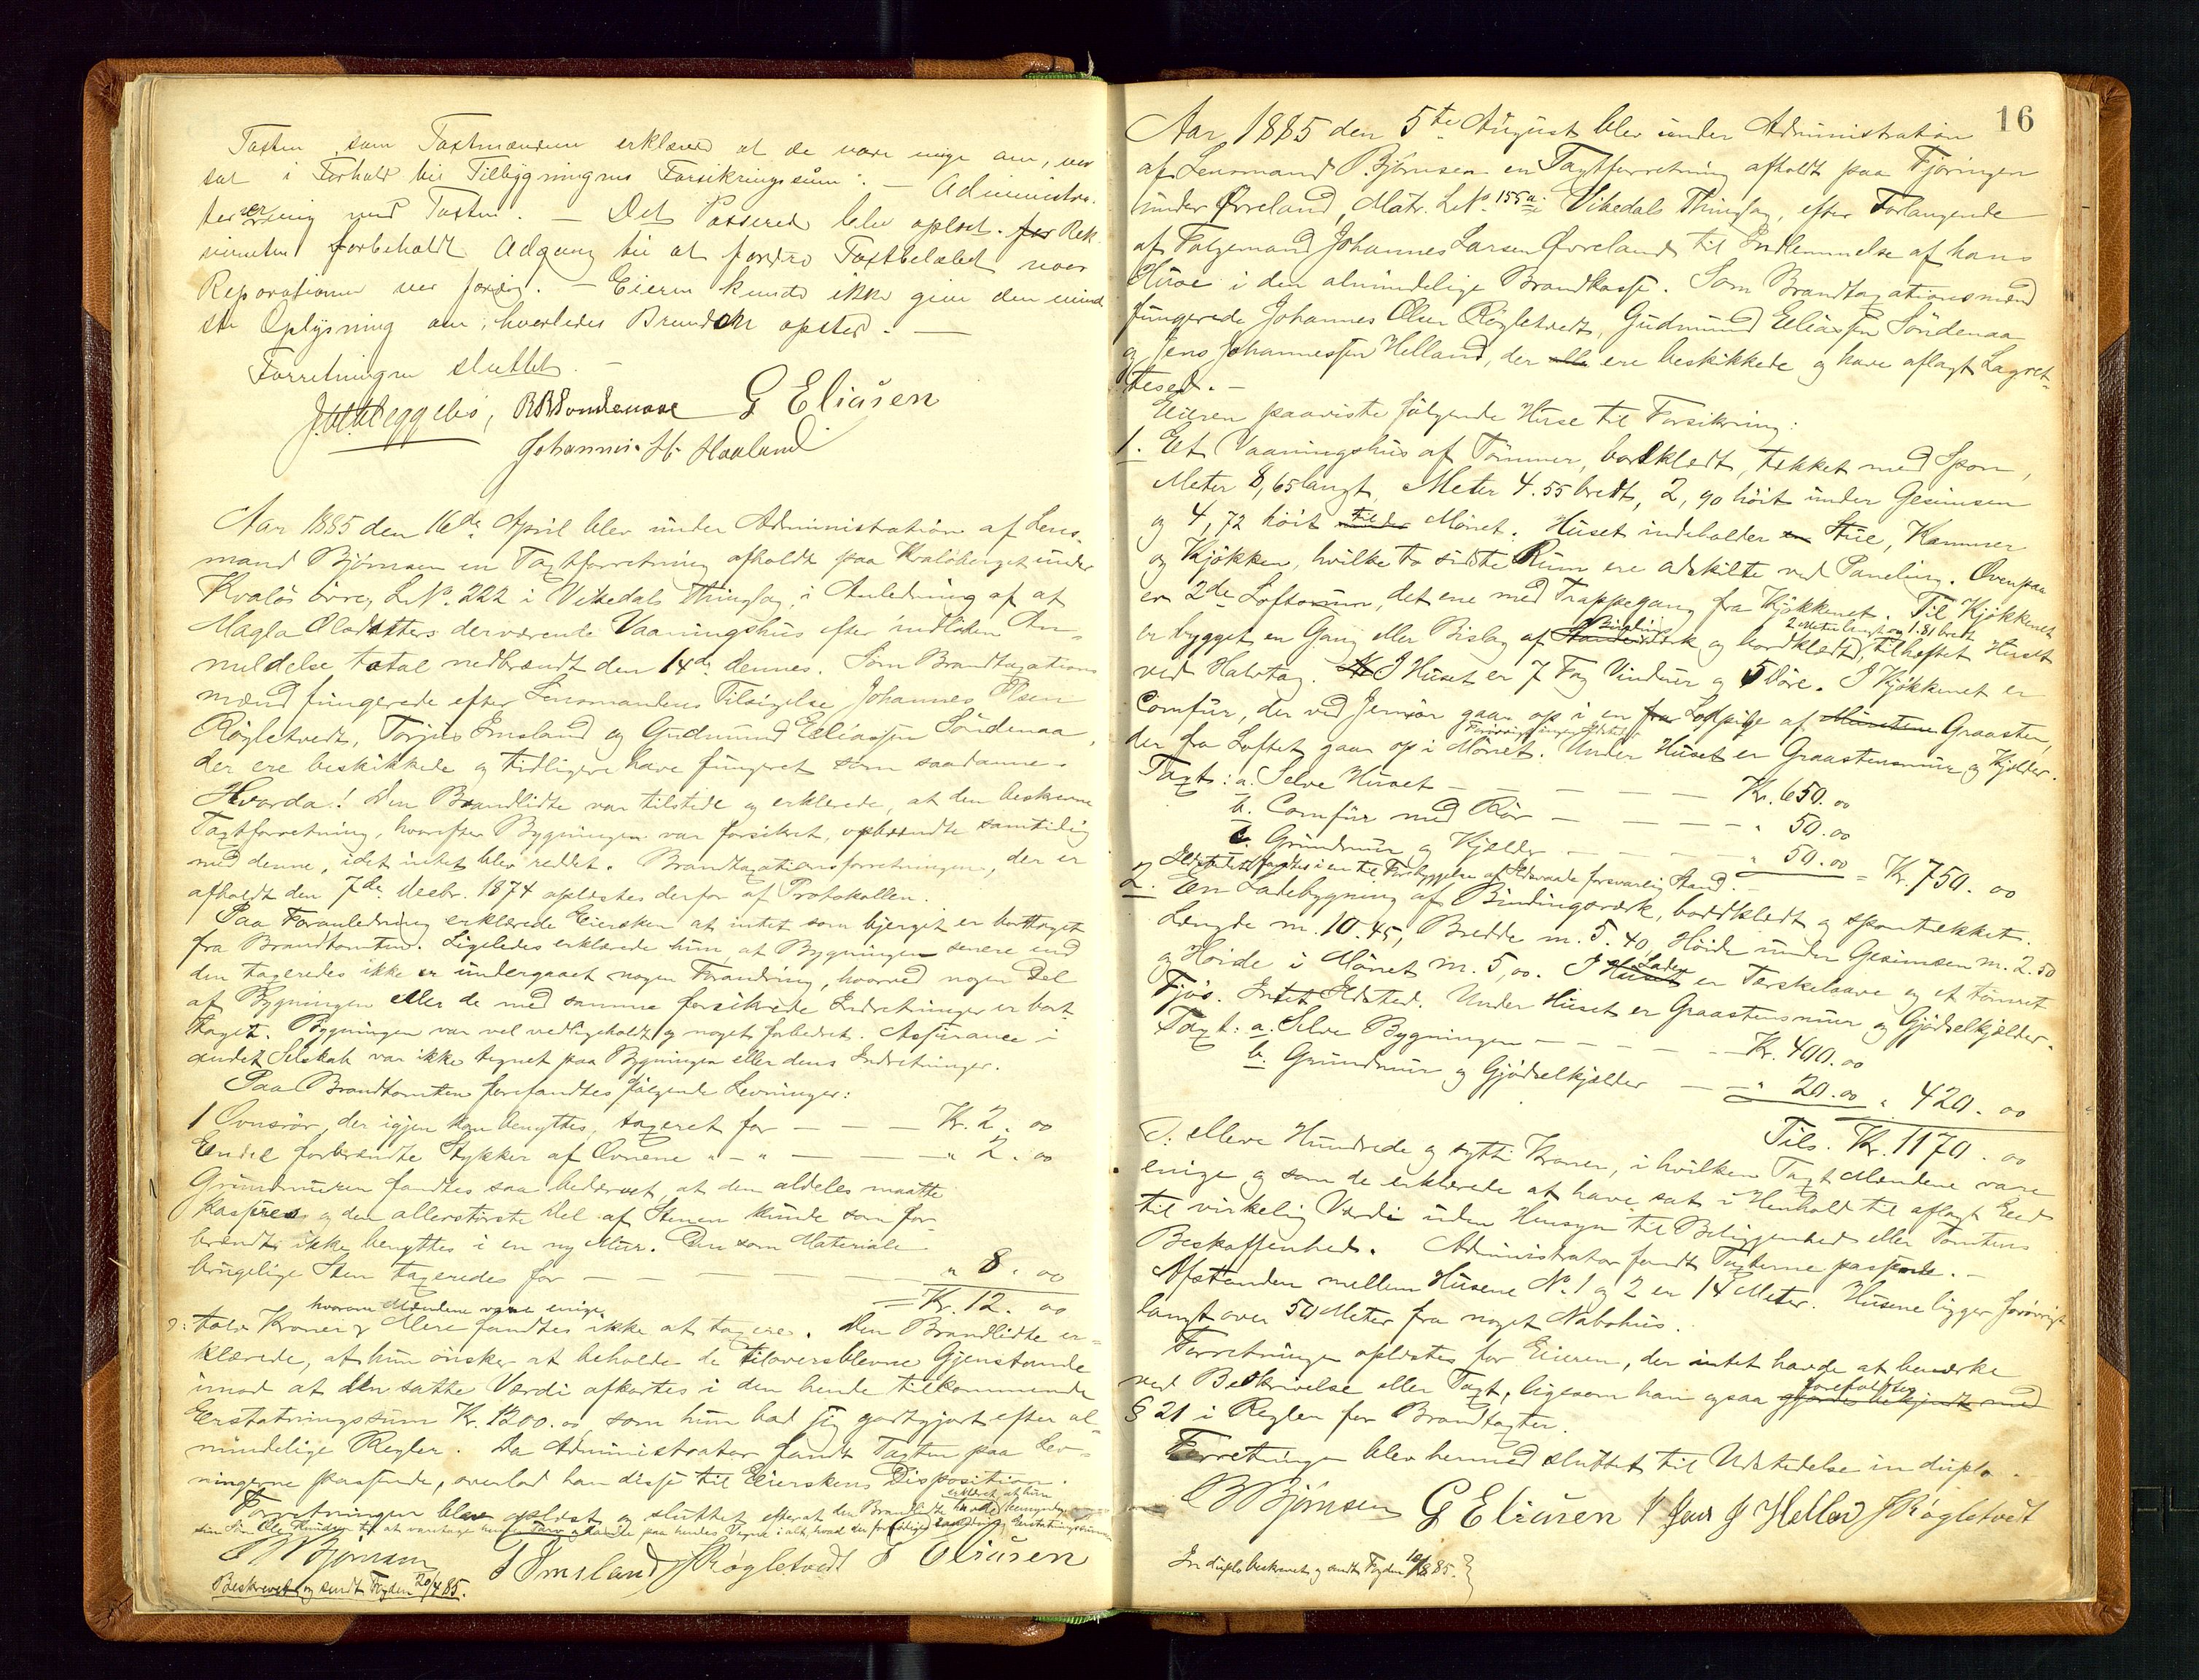 Taxten som Taxtmændene erklæred at de vare enige om, var
sat i Forhold til Tilbygningens Forsikringssum. — Administra-
ter enig med Taxten. — Det Passered blev oplæst. for Rek-
virenten forbeholdt Adgang til at fordre Taxtbeløbet naar
Reparationen var færdig. — Eieren kunde ikke give den mind
ste Oplysning om, hvorledes Branden opstod. —
Forretningen sluttet. —
G Eliasen
Johannis H. Haaland
Aar 1885 den 16de April blev under Administration af Lens-
mand Bjørnsen en Taxtforretning afholdt paa Kvaløberget under
Kvaløs øvre, L.No. 222 i Vikedals Thinglag, i Anledning af at
Magla Oladatters derværende Vaaningshus efter indløben An-
meldelse total nedbrændt den 14de dennes. Som Brandtaxations
mænd fungerede efter Lensmandens Tilsigelse Johannes Olsen
Røgletvedt, Torjus Imsland og Gudmund Eliassen Søndenaa,
der ere beskikkede og tidligere have fungeret som saadanne.
Hvorda! Den Brandlidte var tilstede og erklærede, at den beskrevne
Taxtforretning, hvorefter Bygningen var forsikret, opbrændte samtidig
med denne, idet intet blev reddet. Brandtaxationsforretningen, der er
afholdt den 7de Decbr. 1874 oplæstes derfor af Protokollen.
Paa Foranledning erklærede Eiersken at intet som bjerget er borttaget
fra Brandtomten. Ligeledes erklærede hun, at Bygningen senere end
den taxeredes ikke er undergaaet nogen Forandring, hvorved nogen Del
af Bygningen eller de med samme forsikrede Indretninger er bort
taget. Bygningen var vel vedligeholdt og noget forbedret. Assurance i
andet Selskab var ikke tegnet paa Bygningen eller dens Indretninger.
Paa Brandtomten forefandtes følgende Levninger:
1 Ovnsrør, der igjen kan benyttes, taxeret for — — — Kr. 2.00
Endel forbrændte Stykker af Ovnene " — " — — — " 2.00
Grundmuren fandtes saa bedærvet, at den aldeles maatte
kasseres og den allerstørste Del af Stenen kunde som for-
brændt ikke benyttes i en ny Mur. Den som Materiale
brugelige Sten taxeredes for — — — — — " 8.00
= Kr. 12.00
hvorom Mændene vare enige
ɔ: tolv Kroner Mere fandtes ikke at taxere. Den Brandlidte er-
klærede, at hun ønsker at beholde de tiloversblevne Gjenstande
imod at den satte Værdi afkortes i den hende tilkommende
Erstatningssum Kr. 1200.00, som hun bad sig godtgjort efter al-
mindelige Regler. Da Administrator fandt Taxten paa Lev-
ningerne passende, overlod han disse til Eierskens Disposition.
erklæret at hun
Forretningen blev oplæst og sluttet efterat den Brandlidte havde bemyndiget
B Bjørnsen T Imsland J Røgletvedt G Eliasen
Beskrevet og sendt Fogden 20/4 85.
16
Aar 1885 den 5te August blev under Administration
af Lensmand B. Bjørnsen en Taxtforretning afholdt paa Fjøringen
under Øvreland, Matr. L.No. 155a i Vikedals Thinglag, efter Forlangende
af Folgemand Johannes Larsen Øvreland til Indlemmelse af hans
Huse i den almindelige Brandkasse. Som Brandtaxationsmænd
fungerede Johannes Olsen Røgletvedt, Gudmund Eliassen Søndenaa
og Jens Johannessen Helland, der alle ere beskikkede og have aflagt Lagret-
tesed. —
Eieren paaviste følgende Huse til Forsikring:
1. Et Vaaningshus af Tømmer, bordklædt, tækket med Spon,
Meter 8,65 langt, Meter 4.55 bredt, 2,90 høit under Gesimsen
og 4,72 høit til under Mønet. Huset indeholder en Stue, Kammer
og Kjøkken, hvilke to sidste Rum ere adskilte ved Paneling. Ovenpaa
er 2de Loftsrum, det ene med Trappegang fra Kjøkkenet. Til Kjøkkenet
Bindings 2 Meter langt og 1.81 bredt
er bygget en Gang eller Bislag af Standerværk og bordklædt, tilheftet Huset
ved Halvtag. I Huset er 7 Fag Vinduer og 5 Døre. I Kjøkkenet er
Comfur, der ved Jernrør gaar op i en fra Lodpibe af Mursten Graasten,
der fra Loftet gaar op i Mønet. Under Huset er Graastensmur og Kjælder.
Taxt: a. Selve Huset — — — — — Kr. 650.00
b. Comfur med Rør — — — — " 50.00
c. Grundmur og Kjælder — — — " 50.00 = Kr. 750.00
Ildstedet fandtes i en til Forebyggelse af Ildsvaade forsvarlig Stand. —
2. En Ladebygning af Bindingsværk, bordklædt og spontækket.
Længde m. 10.45, Bredde m. 5.40, Høide under Gesimsen m. 2.50
og Høide i Mønet m. 5,00. I Huset Laden er Tærskelaave og et tømret
Fjøs. Intet Ildsted. Under Huset er Graastensmur og Gjødselkjælder.
Taxt: a. Selve Bygningen — — — — — Kr. 400.00
b. Grundmur og Gjødselkjælder — — " 20.00 " 420.00
Tils. Kr. 1170.00
ɔ: elleve Hundrede og sytti Kroner, i hvilken Taxt Mændene vare
enige og som de erklærede at have sat i Henhold til aflagt Eed
til virkelig Værdi uden Hensyn til Beliggenhed eller Tomtens
Beskaffenhed. Administrator fandt Taxterne passende. —
Afstanden mellem Husene No. 1 og 2 er 14 Meter. Husene ligger forøvrigt
langt over 50 Meter fra noget Nabohus.
Forretningen oplæstes for Eieren, der intet havde at bemærke
ved Beskrivelse eller Taxt, ligesom han ogsaa foreholdtes gjordes bekjendt med
§ 21 i Regler for Brandtaxter.
Forretningen blev hermed sluttet til Udstedelse in duplo.
B Bjørnsen G Eliasen Jens J Helland J Røgletvedt
In duplo beskrevet og sendt Fogden 10/8 85.